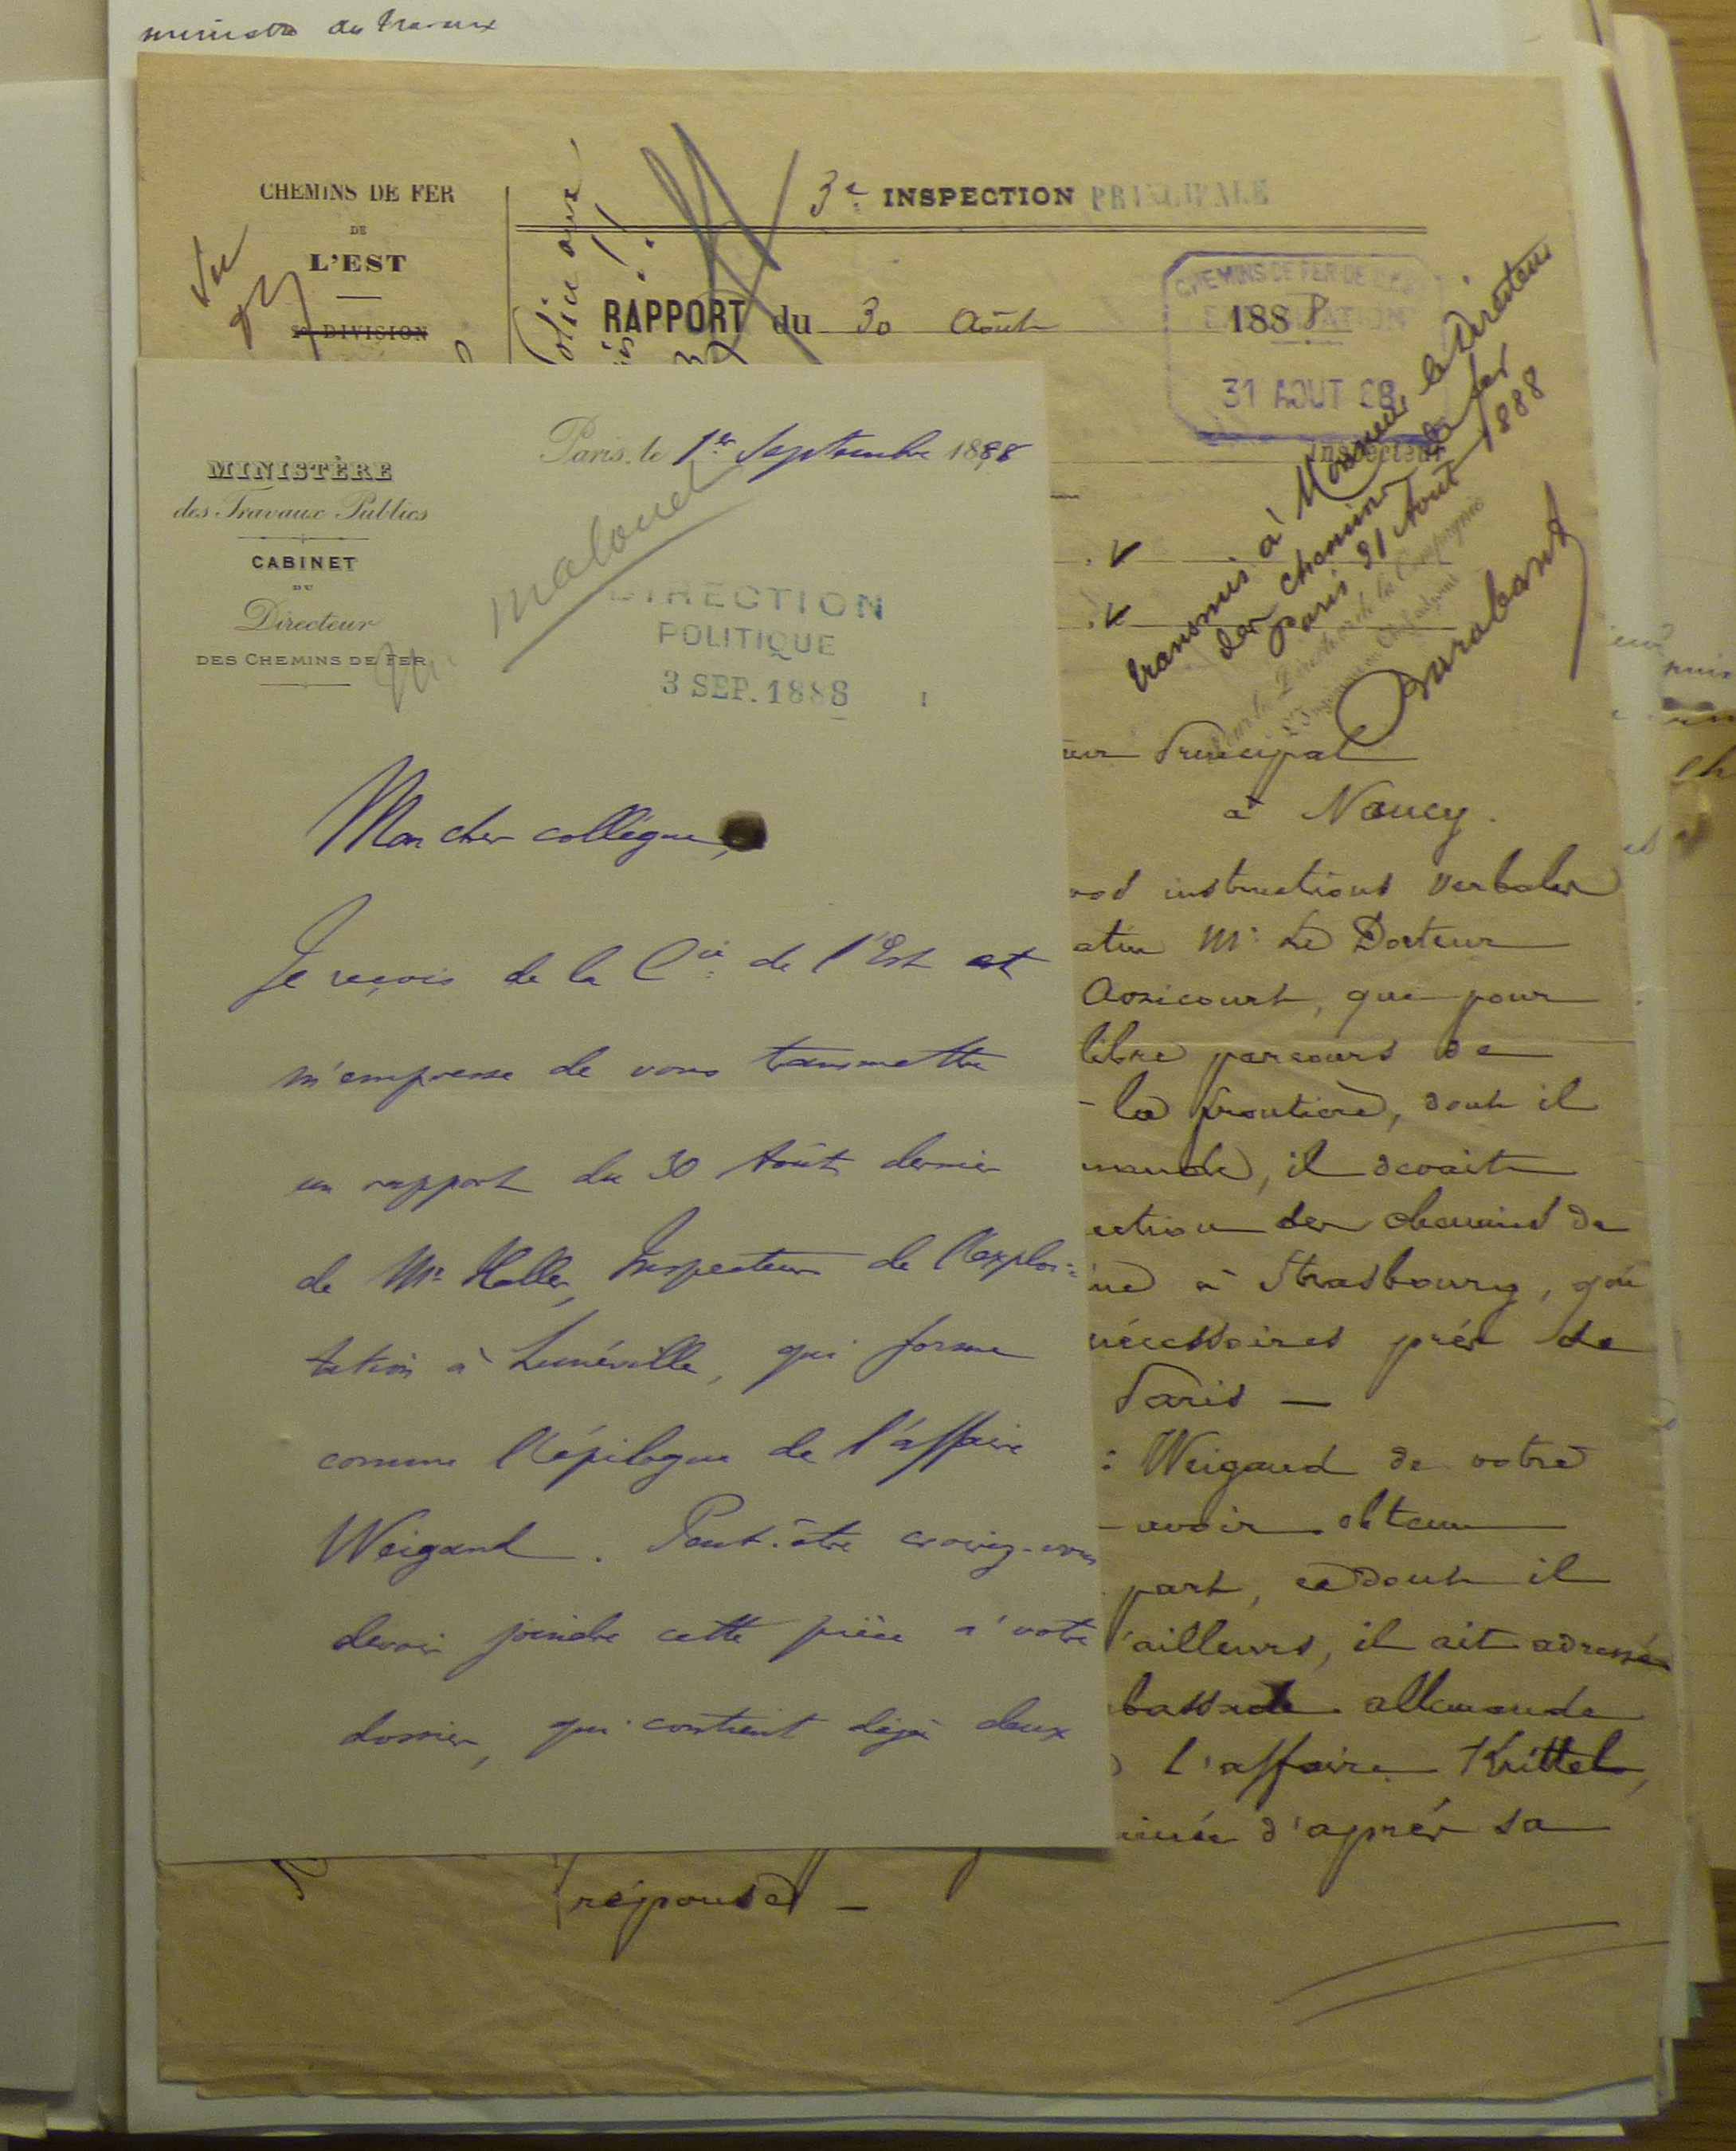 ministre des travaux
CHEMINS DE FER
DE
L'EST
Vu
DIVISION
3e INSPECTION PRINCIPALE
RAPPORT du 30 Août 1888
CHEMINS DE FER DE L'EST
EXPLOITATION
31 AOUT 88
Inspecteur
transmis à Monsieur le Directeur
des chemins de fer
Paris 31 Août 1888
Durabant
MINISTÈRE
des Travaux Publics
CABINET
DU
Directeur
DES CHEMINS DE FER
Paris, le 1er Septembre 1888
DIRECTION
POLITIQUE
3 SEP. 1888
Mon cher collègue,
Je reçois de la Cie de l'Est et
m'empresse de vous transmettre
un rapport du 30 Août dernier
de Mr Haller, Inspecteur de l'exploi=
tation à Lunéville, qui forme
comme l'épilogue de l'affaire
Weigand. Peut-être croirez-vous
devoir joindre cette pièce à votre
dossier, qui contient déjà deux
Principal
à Nancy.
vos instructions verbales
Mr Le Docteur
que pour
libre parcours de
la frontière, dont il
il devait
des chemins de
à Strasbourg,
nécessaires près de
Paris —
Weigand de votre
avoir obtenu
part, ce dont il
d'ailleurs, il ait adressé
allemande
l'affaire Kittel,
d'après sa
réponse —